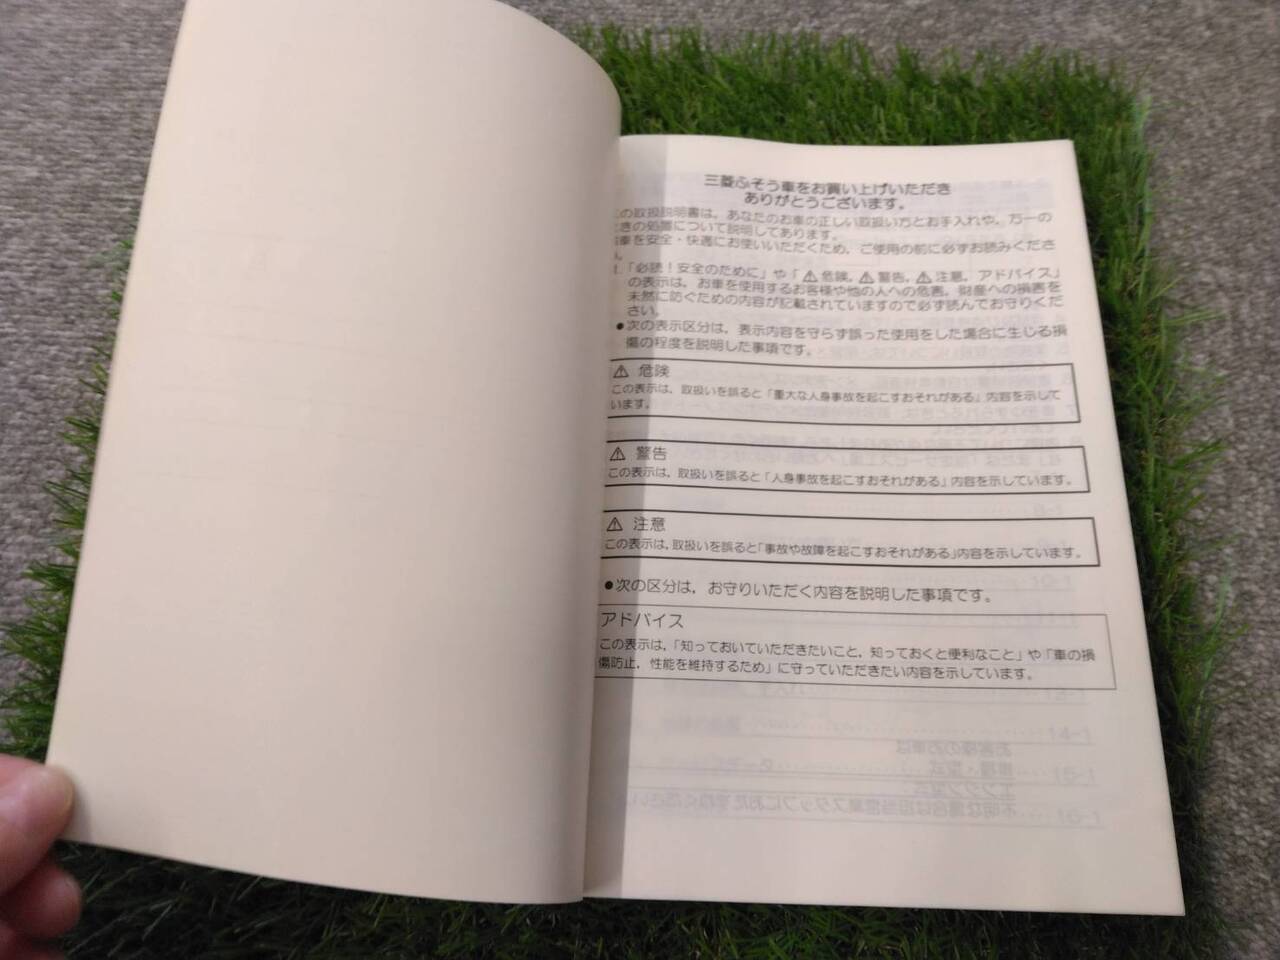 三菱ふそう車をお買い上げいただき
ありがとうございます。
この取扱説明書は，あなたのお車の正しい取扱い方とお手入れや，万一の
ときの処置について説明してあります。
車を安全・快適にお使いいただくため，ご使用の前に必ずお読みくださ
「必読！安全のために」や「⚠危険，⚠警告，⚠注意，アドバイス」
の表示は，お車を使用するお客様や他の人への危害，財産への損害を
未然に防ぐための内容が記載されていますので必ず読んでお守りくだ
さい。
●次の表示区分は，表示内容を守らず誤った使用をした場合に生じる損
傷の程度を説明した事項です。
⚠ 危険
この表示は，取扱いを誤ると「重大な人身事故を起こすおそれがある」内容を示して
います。
⚠ 警告
この表示は，取扱いを誤ると「人身事故を起こすおそれがある」内容を示しています。
⚠ 注意
この表示は，取扱いを誤ると「事故や故障を起こすおそれがある」内容を示しています。
●次の区分は，お守りいただく内容を説明した事項です。
アドバイス
この表示は，「知っておいていただきたいこと，知っておくと便利なこと」や「車の損
傷防止，性能を維持するため」に守っていただきたい内容を示しています。